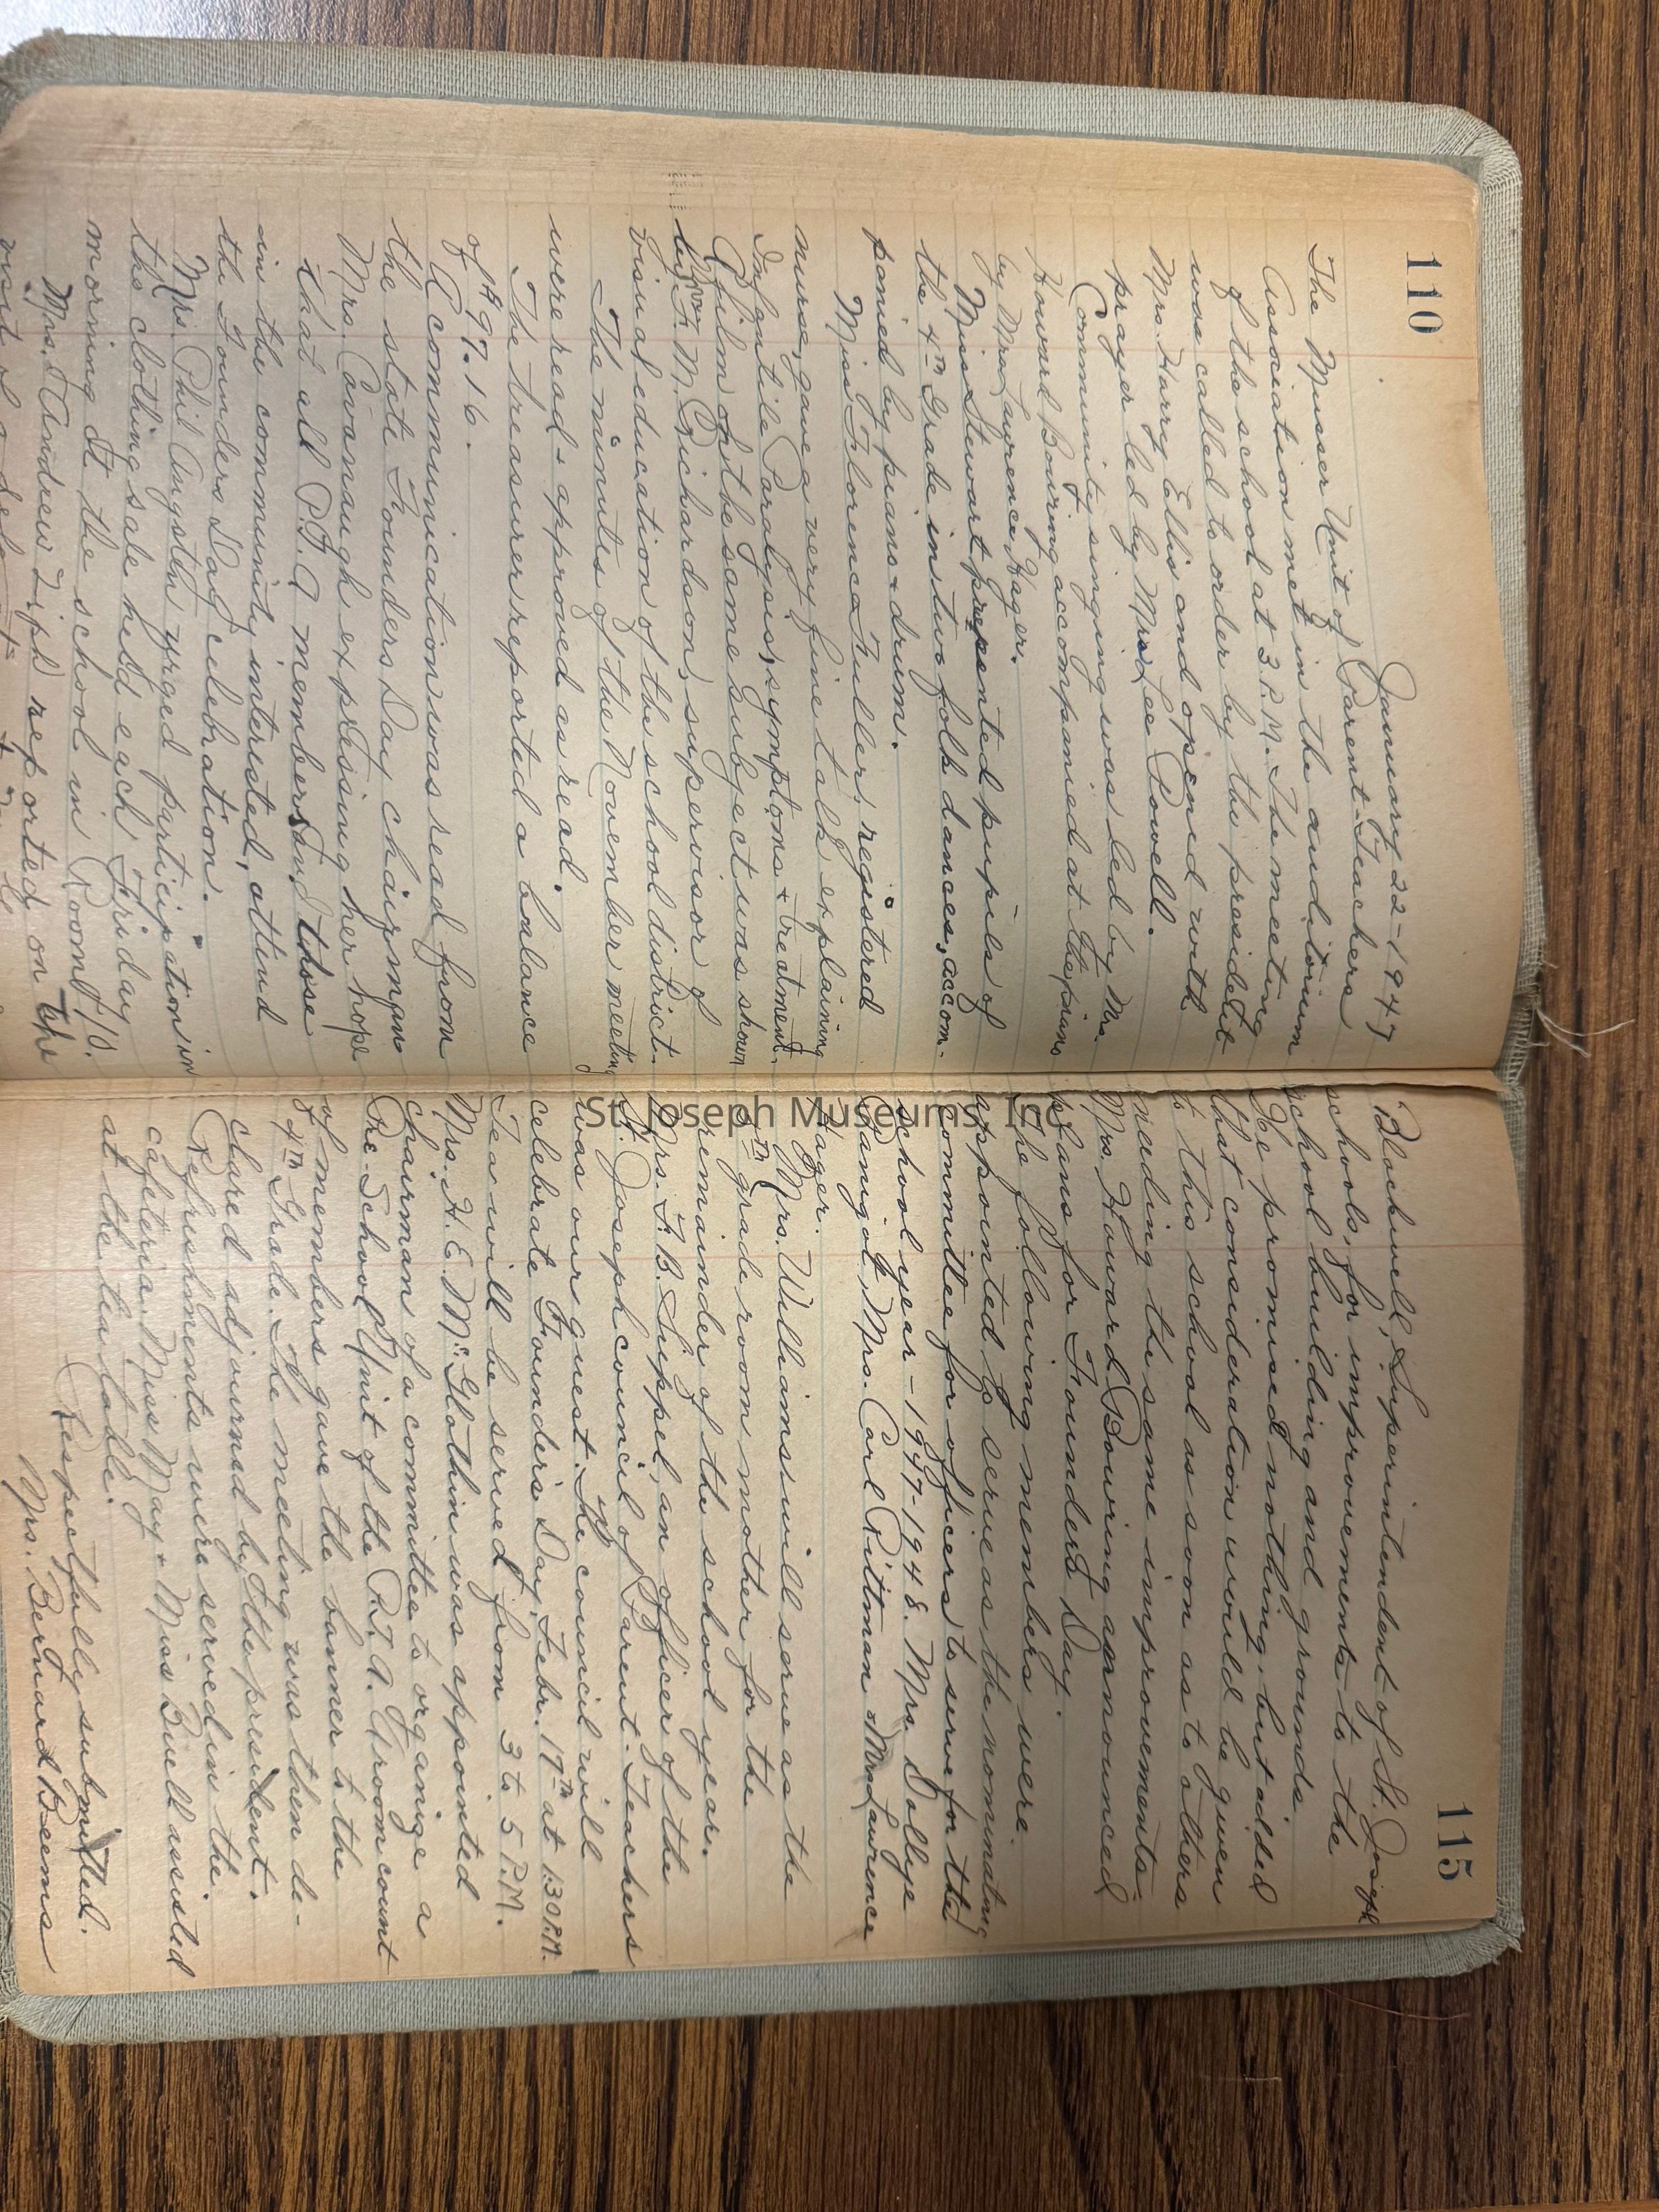 110
January 22-1947
The Musser Unit of Parent-Teachers
Association met in the auditorium
of the school at 3 P.M. The meeting
was called to order by the president
Mrs. Harry Ellis and opened with
prayer led by Mrs. Lee Powell.
Community singing was led by Mrs.
Howard Bowring accompanied at the piano
by Mrs. Lawrence Hager.
Miss Stewart presented pupils of
the 4th Grade in two folk dances, accom-
panied by piano & drum.
Miss Florence Fuller, registered
nurse, gave a very fine talk explaining
Infantile Paralysis, symptoms & treatment.
A film of the same subject was shown
by F. M. Richardson, supervisor of
visual education of the school district.
The minutes of the November meeting
were read & approved as read.
The treasurer reported a balance
of $97.16.
A communication was read from
the state Founders Day chairman
Mrs. Cavanaugh expressing her hope
that all P.T.A members and those
in the community interested, attend
the Founders Day celebration.
Mrs. Phil Angsten urged participation in
the clothing sale held each Friday
morning at the school in Room 110.
Mrs. Andrew Zipf reported on the
115
Blackwell, Superintendent of St. Joseph
schools, for improvements to the
school building and grounds.
He promised nothing, but added
that consideration would be given
to this school as soon as to others
needing the same improvements.
Mrs. Howard Bowring announced
plans for Founders Day.
The following members were
appointed to serve as the nominating
committee for officers to serve for the
school year - 1947-1948. Mrs. Dollye
Panigot, Mrs. Carl Pittman & Mrs. Lawrence
Hager.
Mrs. Williams will serve as the
grade room mother for the
remainder of the school year.
Mrs. F. B. Suppel, an officer of the
St. Joseph council of Parent-Teachers
was our guest. The council will
celebrate Founder's Day, Febr. 17th at 1:30 P.M.
Tea will be served from 3 to 5 P.M.
Mrs. H. E. McGlothlin was appointed
chairman of a committee to organize a
Pre-School Unit of the P.T.A. A room count
of members gave the banner to the
4th Grade. The meeting was then de-
clared adjourned by the president.
Refreshments were served in the
cafeteria. Miss May & Miss Buell assisted
at the tea table.
Respectfully submitted.
Mrs. Bernard Beems
St. Joseph Museums, Inc